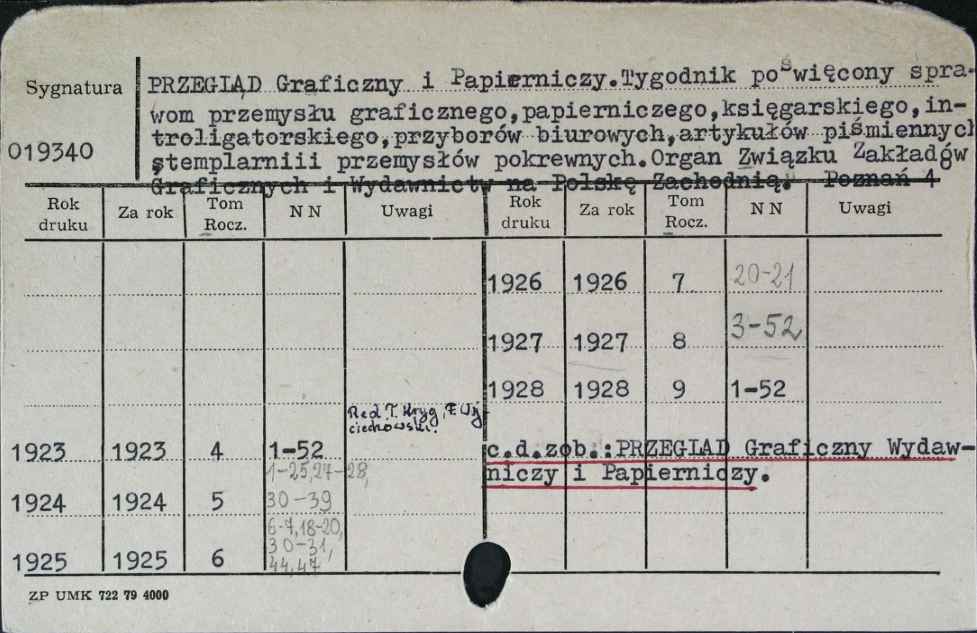 Sygnatura
019340
PRZEGLĄD Graficzny i Papierniczy.Tygodnik poświęcony spra-
wom przemysłu graficznego,papierniczego,księgarskiego,in-
troligatorskiego,przyborów biurowych,artykułów piśmiennych
stemplarniii przemysłów pokrewnych.Organ Związku Zakładów
Graficznych i Wydawnictw na Polskę Zachodnią. Poznań 4
Rok druku Za rok Tom Rocz. N N Uwagi Rok druku Za rok Tom Rocz. N N Uwagi
1926 1926 7 20-21
1927 1927 8 3-52
1928 1928 9 1-52
Red. T. Kryg, F. Woj-
ciechowski.
1923 1923 4 1-52
1-25,27-28,
1924 1924 5 30-39
6-7,18-20,
30-31,
1925 1925 6 44,47
c.d.zob.:PRZEGLĄD Graficzny Wydaw-
niczy i Papierniczy.
ZP UMK 722 79 4000